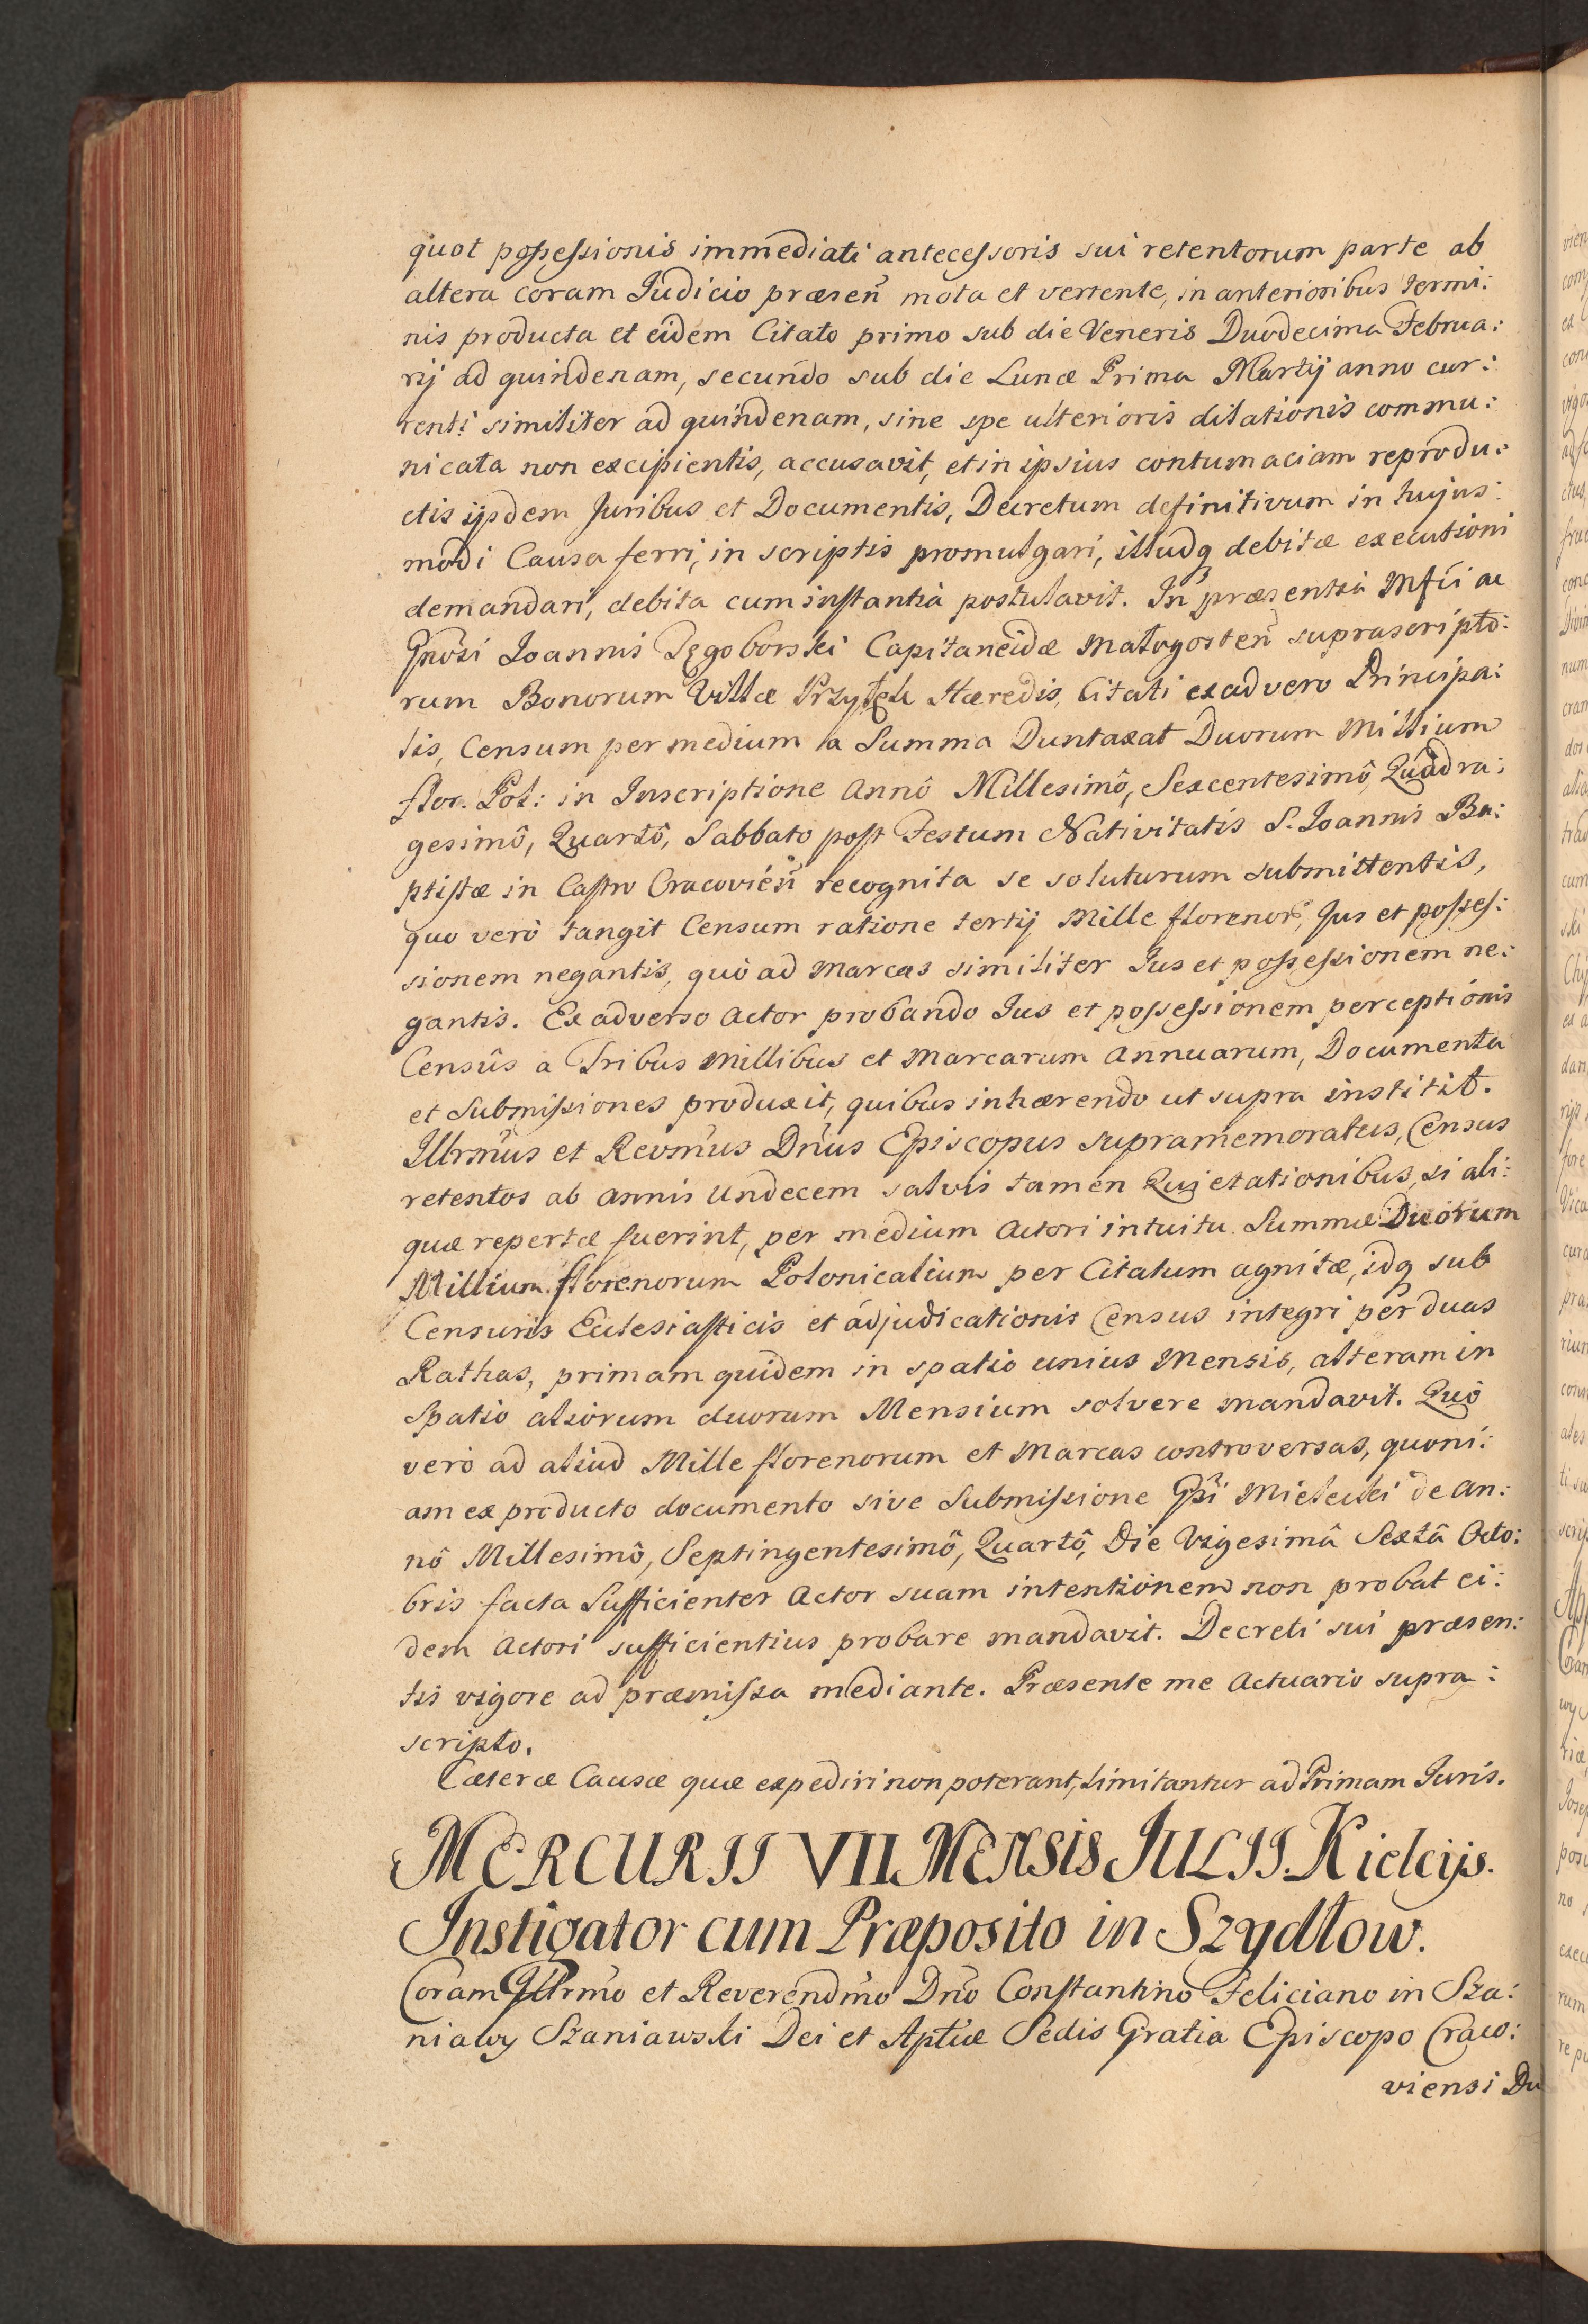 quot possessionis immediati antecessoris sui retentorum parte ab
altera coram Judicio præsen̄ mota et vertente, in anterioribus termi:
nis producta et eidem Citato primo sub die Veneris Duodecima Februa:
rij ad quindenam, secundo sub die Lunæ Prima Martij anno cur:
renti similiter ad quindenam, sine spe ulterioris dilationis commu:
nicata non excipientis, accusavit, et in ipsius contumaciam reprodu:
ctis ijsdem Juribus et Documentis, Decretum definitivum in hujus:
modi Causa ferri, in scriptis promulgari, illudq debitæ executioni
demandari, debita cum instantia postulavit. In præsentia Mfci ac
Gnosi Joannis Tęgoborski Capitaneidæ Małogosten̄ suprascripto:
rum Bonorum Villæ Przyłęk Hæredis, Citati ex advero Principa:
lis, Censum per medium a Summa Duntaxat Duorum Millium
flor. Pol: in Inscriptione Annô Millesimô, Sexcentesimô, Quadra:
gesimô, Quartô, Sabbato post Festum Nativitatis S. Joannis Ba:
ptistæ in Castro Cracovien̄ recognita se soluturum submittentis,
quo verò tangit Censum ratione tertij Mille florenor, Jus et posses:
sionem negantis, quò ad Marcas similiter Jus et possessionem ne:
gantis. Ex adverso Actor probando Jus et possessionem perceptionis
Censûs a Tribus Millibus et Marcarum Annuarum, Documenta
et Submissiones produxit, quibus inhærendo ut supra institit.
Illrmus et Revmus Dnus Episcopus supramemoratus, Census
retentos ab annis undecem salvis tamen Quietationibus, si ali:
quæ repertæ fuerint, per medium Actori intuitu Summæ Duorum
Millium florenorum Polonicalium per Citatum agnitæ, idq sub
Censuris Ecclesiasticis et adjudicationis Census integri per duas
Rathas, primam quidem in spatio unius Mensis, alteram in
Spatio aliorum duorum Mensium solvere mandavit. Quò
verò ad aliud Mille florenorum et Marcas controversas, quoni:
am ex producto documento sive Submissione Gsi Mielecki de An:
nô Millesimô, Septingentesimô, Quartô, Die Vigesimâ Sextâ Octo:
bris facta Sufficienter Actor suam intentionem non probat ei:
dem Actori sufficientius probare mandavit. Decreti sui præsen:
tis vigore ad præmissa mediante. Præsente me Actuario supra:
scripto.
Cæteræ Causæ quæ expediri non poterant, limitantur ad Primam Juris.
MERCURII VII MENSIS JULII. Kielcijs.
Instigator cum Præposito in Szydłow.
Coram Illrmo et Reverendmo Dno Constantino Feliciano in Sza:
niawy Szaniawski Dei et Aplicæ Sedis Gratia Episcopo Craco:
viensi Du